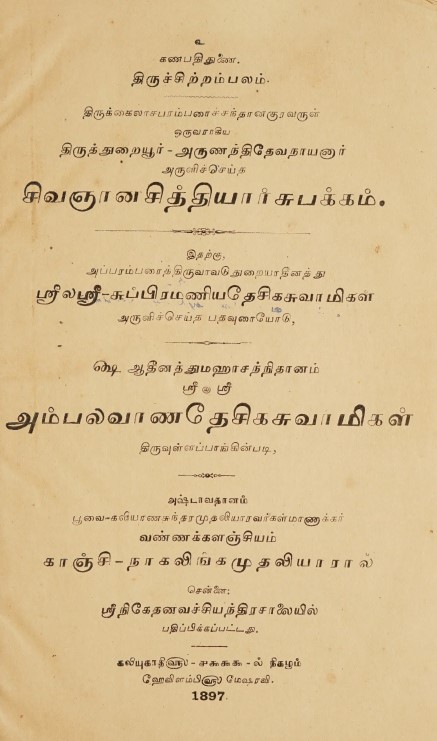 உ
கணபதிதுணை.
திருச்சிற்றம்பலம்.
திருக்கைலாசபரம்பரைச்சந்தானகுரவருள்
ஒருவராகிய
திருத்துறையூர் - அருணந்திதேவநாயனார்
அருளிச்செய்த
சிவஞானசித்தியார்சுபக்கம்.
இதற்கு,
அப்பரம்பரைத்திருவாவடுதுறையாதீனத்து
ஸ்ரீலஸ்ரீ-சுப்பிரமணியதேசிகசுவாமிகள்
அருளிச்செய்த பதவுரையோடு,
ஆதீனத்துமஹாசந்நிதானம்
ஸ்ரீலஸ்ரீ
அம்பலவாணதேசிகசுவாமிகள்
திருவுளப்பாங்கின்படி,
அஷ்டாவதானம்
பூவை-கலியாணசுந்தரமுதலியாரவர்கள்மாணாக்கர்
வண்ணக்களஞ்சியம்
காஞ்சி - நாகலிங்கமுதலியாரால்
சென்னை:
ஸ்ரீநிகேதனவச்சியந்திரசாலையில்
பதிப்பிக்கப்பட்டது.
கலியுகாதி - ௪௯௯௯ - ல் நிகழும்
ஹேவிளம்பி மேஷரவி.
1897.